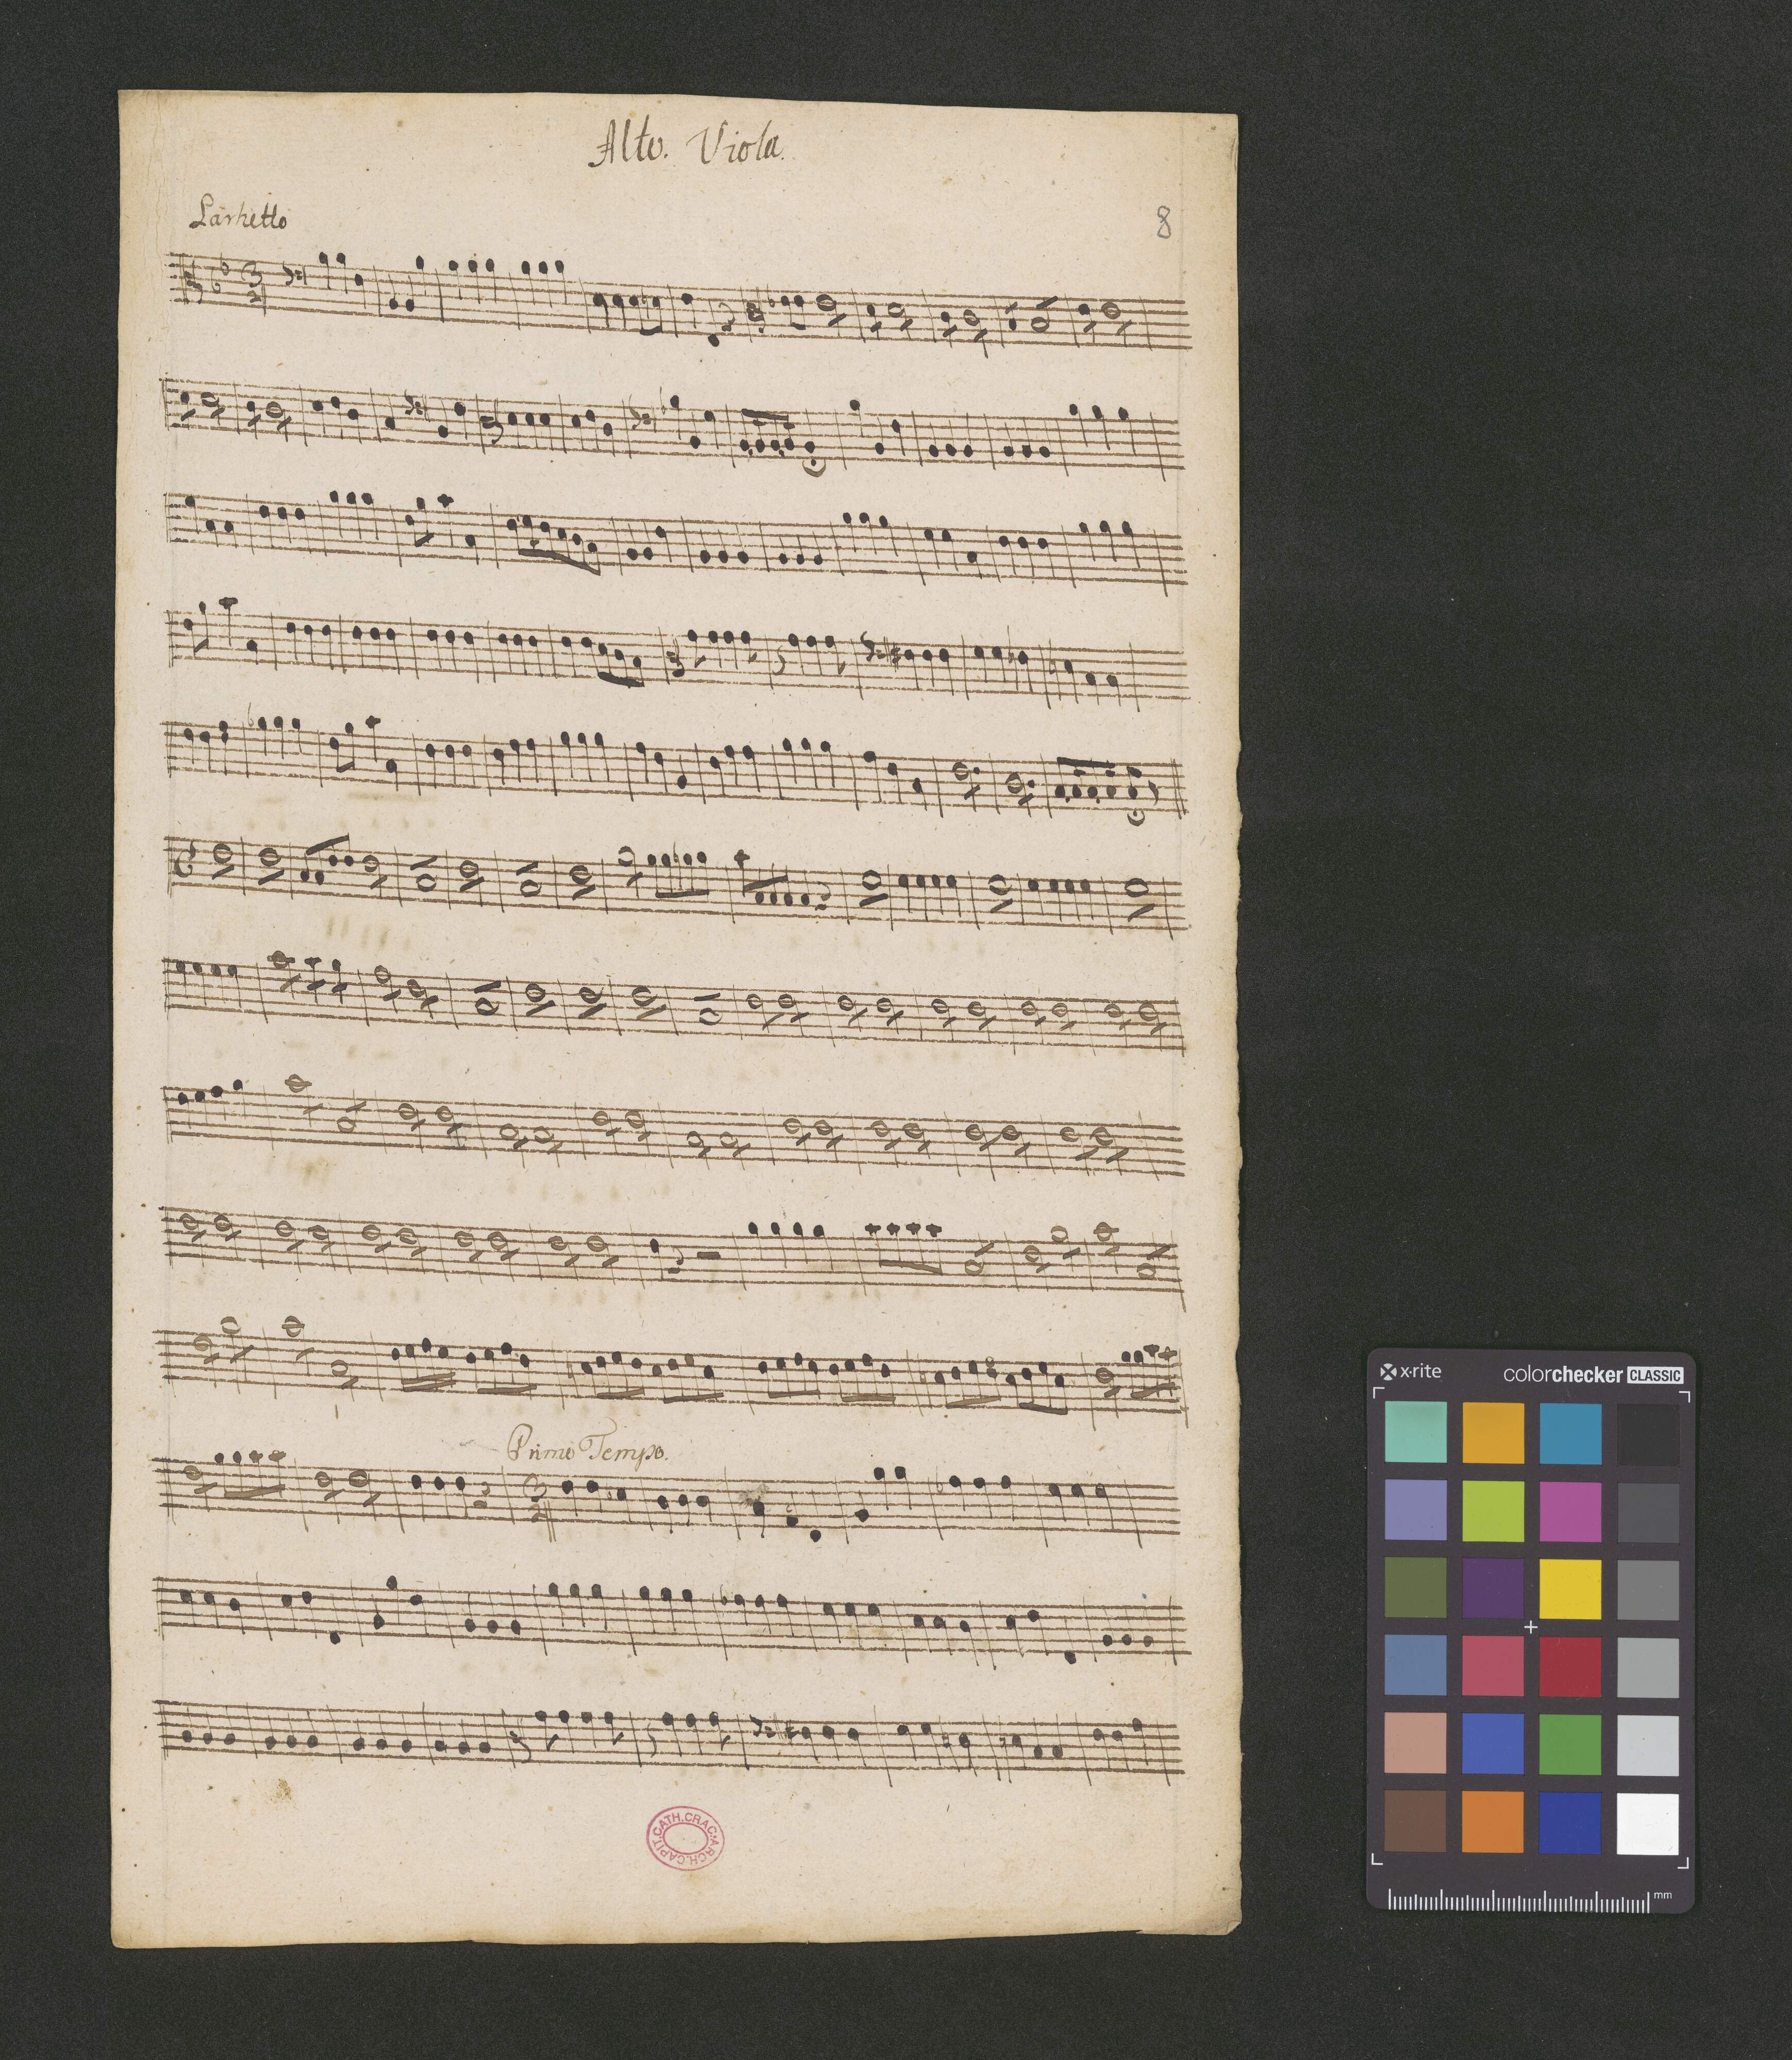 Alto. Viola.
Larhetto
8
Primo Tempo.
ARCH.CAPIT.CATH.CRAC.
x-rite
colorchecker CLASSIC
mm